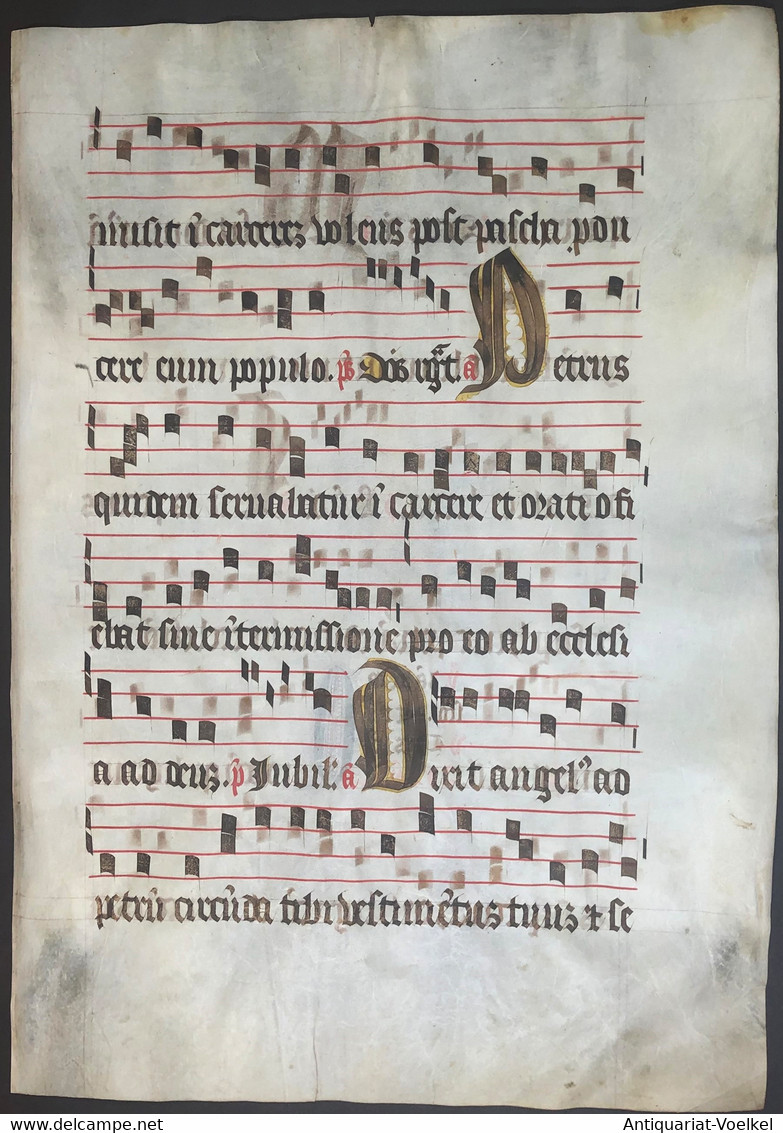 misit ī carcerez volens post pascha produ
cere eum populo. ps Dñs rgt. a Petrus
quidem seruabatur ī carcere et oratio fi
ebat sine ītermissione pro eo ab ecclesi
a ad deuz. p Iubil'. a Dixit angel' ad
petrū circūda tibi vestimētuz tuuz & se
Antiquariat-Voelkel